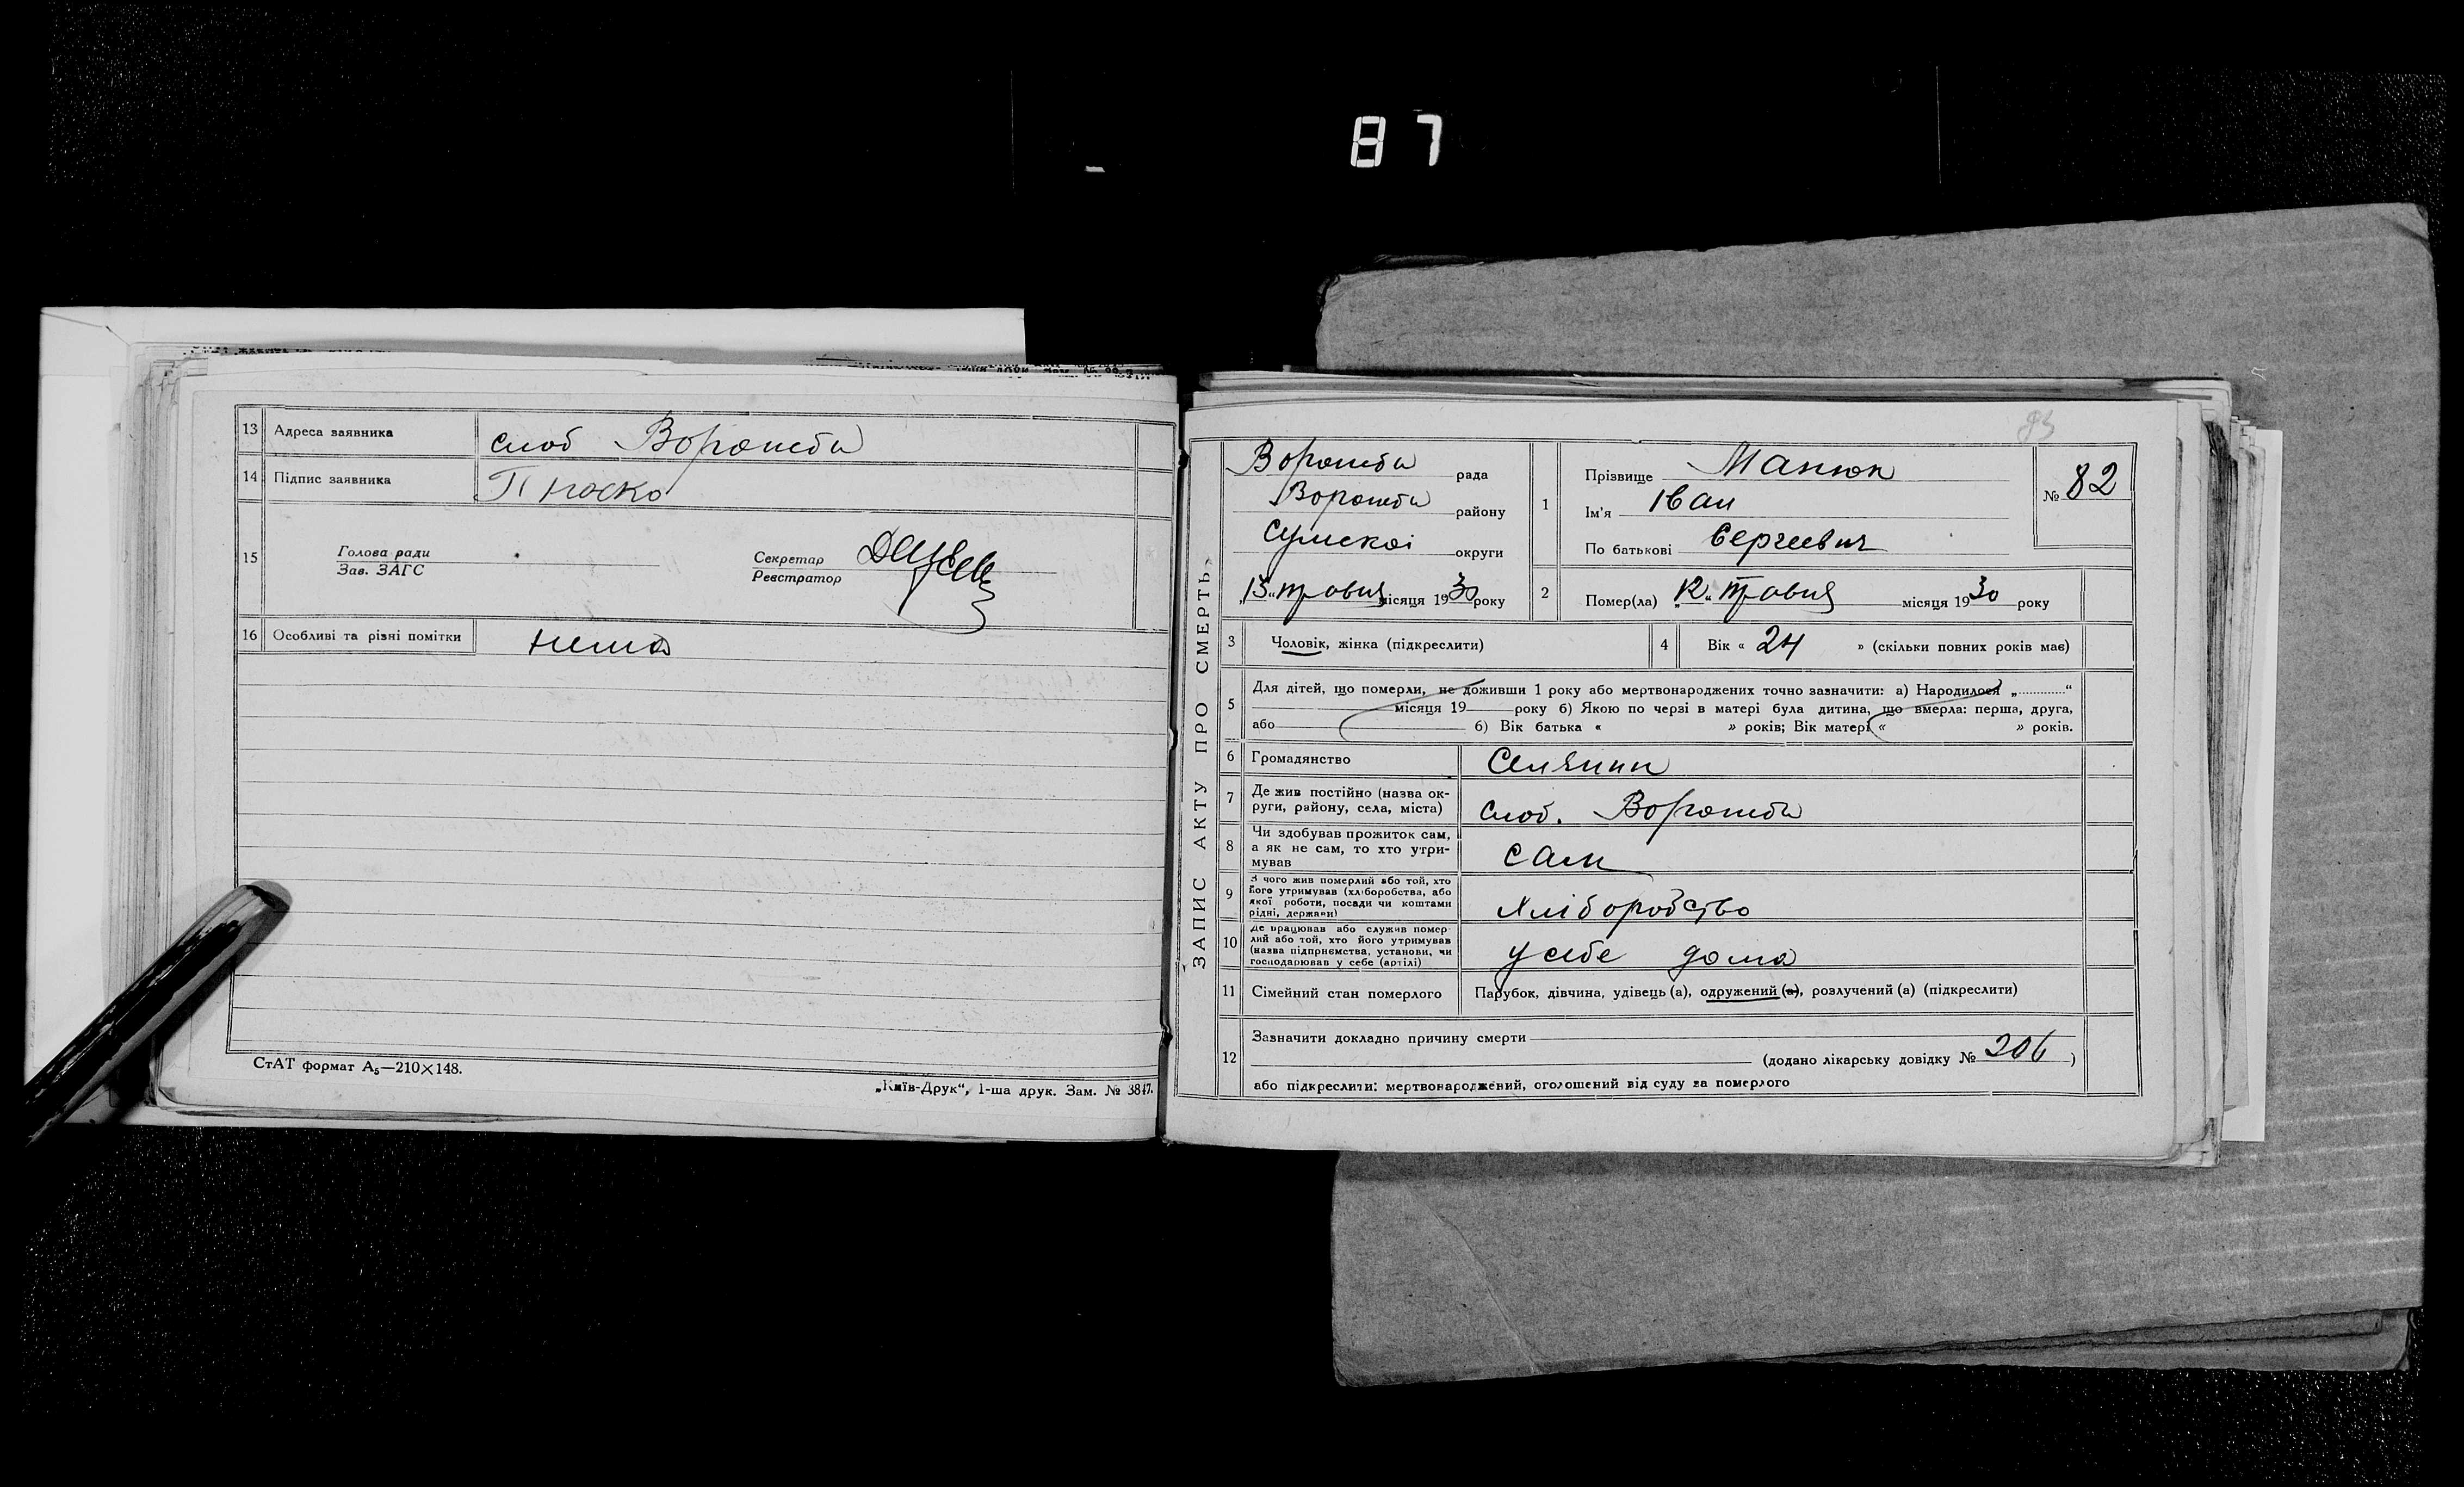 87
13 Адреса заявника слоб Ворожба
14 Підпис заявника
15 Голова ради
Зав. ЗАГС
Секретар
Реєстратор
16 Особливі та різні помітки нема
СтАТ формат А₅—210×148.
„Київ-Друк“, 1-ша друк. Зам. № 3847.
ЗАПИС АКТУ ПРО СМЕРТЬ
Ворожба рада
Ворожба району
Сумскоі округи
„13“ травня місяця 1930 року
1 Прізвище Манюк
Ім'я Іван
По батькові Сергеевич
№ 82
2 Помер(ла) „12“ травня місяця 1930 року
3 Чоловік, жінка (підкреслити)
4 Вік « 24 » (скільки повних років має)
5 Для дітей, що померли, не доживши 1 року або мертвонароджених точно зазначити: а) Народилося „............“
місяця 19 року б) Якою по черзі в матері була дитина, що вмерла: перша, друга,
або б) Вік батька « » років; Вік матері « » років.
6 Громадянство Селянин
7 Де жив постійно (назва ок-
руги, району, села, міста) слоб. Ворожба
8 Чи здобував прожиток сам,
а як не сам, то хто утри-
мував сам
9 З чого жив померлий або той, хто
його утримував (хліборобства, або
якої роботи, посади чи коштами
рідні, держави) хліборобство
10 Де працював або служив помер-
лий або той, хто його утримував
(назва підприємства, установи, чи
господарював у себе (артілі) у себе дома
11 Сімейний стан померлого Парубок, дівчина, удівець (а), одружений (а), розлучений (а) (підкреслити)
12 Зазначити докладно причину смерти
(додано лікарську довідку № 206 )
або підкреслити: мертвонароджений, оголошений від суду за померлого